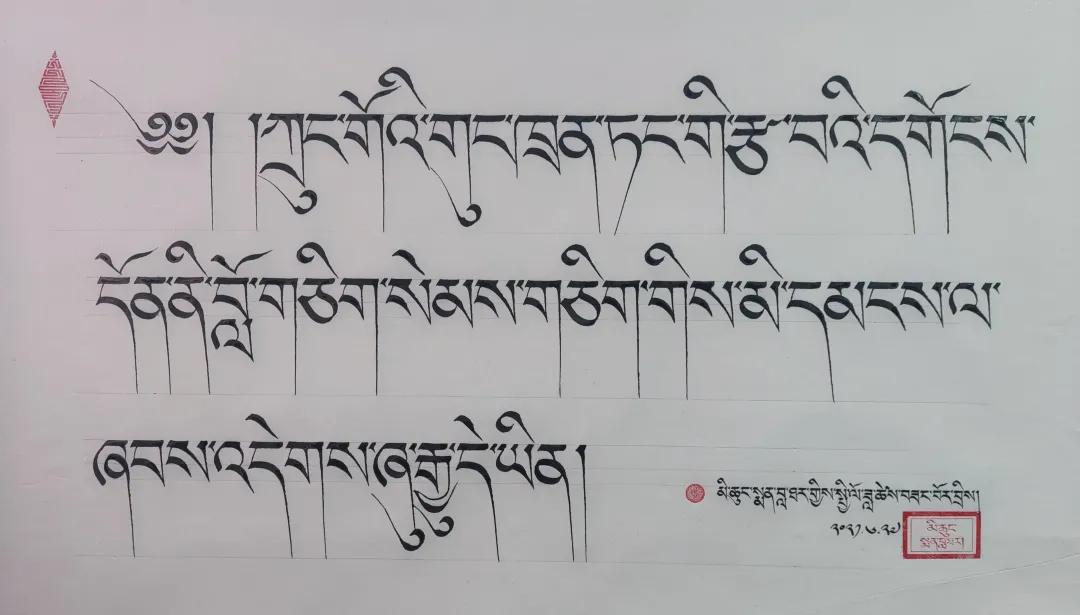 ༄༅། །ཀྲུང་གོའི་གུང་ཁྲན་ཏང་གི་རྩ་བའི་དགོངས་
དོན་ནི་བློ་གཅིག་སེམས་གཅིག་གིས་མི་དམངས་ལ་
ཞབས་འདེགས་ཞུ་རྒྱུ་དེ་ཡིན།
མི་ཆུང་སྨན་བླ་ཐར་གྱིས་སྤྱི་ལོ་ཟླ་ཚེས་བཟང་པོར་བྲིས།
༢༠༢༡.༦.༢༧
མི་ཆུང་